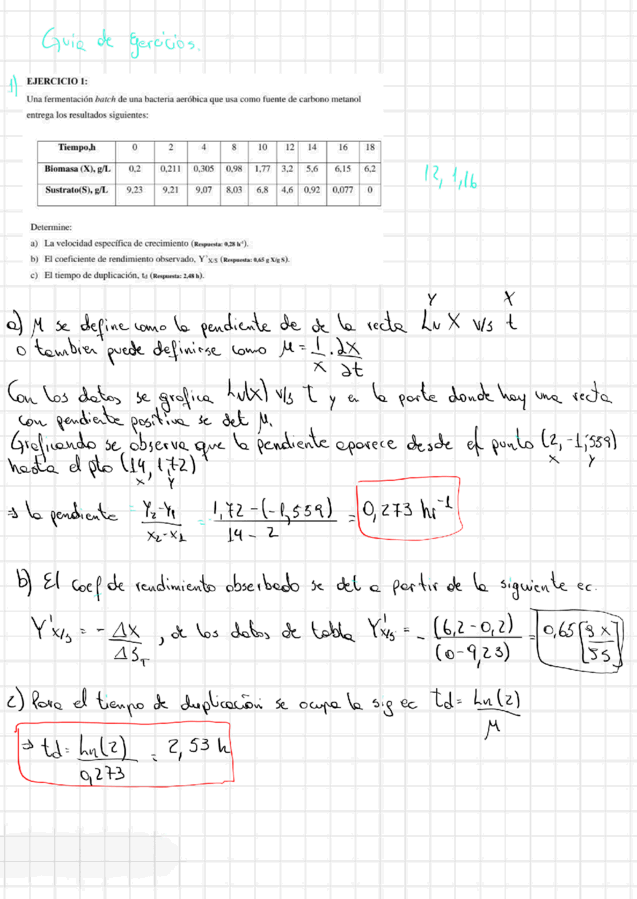 Guia de Ejercicios.
1)
EJERCICIO 1:
Una fermentación batch de una bacteria aeróbica que usa como fuente de carbono metanol
entrega los resultados siguientes:
Tiempo,h 0 2 4 8 10 12 14 16 18
Biomasa (X), g/L 0,2 0,211 0,305 0,98 1,77 3,2 5,6 6,15 6,2
Sustrato(S), g/L 9,23 9,21 9,07 8,03 6,8 4,6 0,92 0,077 0
Determine:
a) La velocidad específica de crecimiento (Respuesta: 0,28 h⁻¹).
b) El coeficiente de rendimiento observado, Y'x/s (Respuesta: 0,65 g X/g S).
c) El tiempo de duplicación, td (Respuesta: 2,48 h).
Y X
a) M se define como la pendiente de de la recta Ln X v/s t
o tambien puede definirse como μ = 1/x · ∂X/∂t
Con los datos se grafica Ln(x) v/s t y en la parte donde hay una recta
con pendiente positiva se det μ.
Graficando se observa que la pendiente aparece desde el punto (2, -1,559)
x y
hasta el pto (14, 1,72)
x y
⇒ la pendiente = Y2-Y1/X2-X1 = 1,72-(-1,559)/14-2 = 0,273 hr⁻¹
b) El coef de rendimiento obserbado se det a partir de la siguiente ec.
Y'x/s = - ΔX/ΔS_T , de los datos de tabla Y'x/s = - (6,2-0,2)/(0-9,23) = 0,65 [gX/gS]
c) Para el tiempo de duplicación se ocupa la sig ec td = Ln(2)/μ
⇒ td = Ln(2)/0,273 = 2,53 h